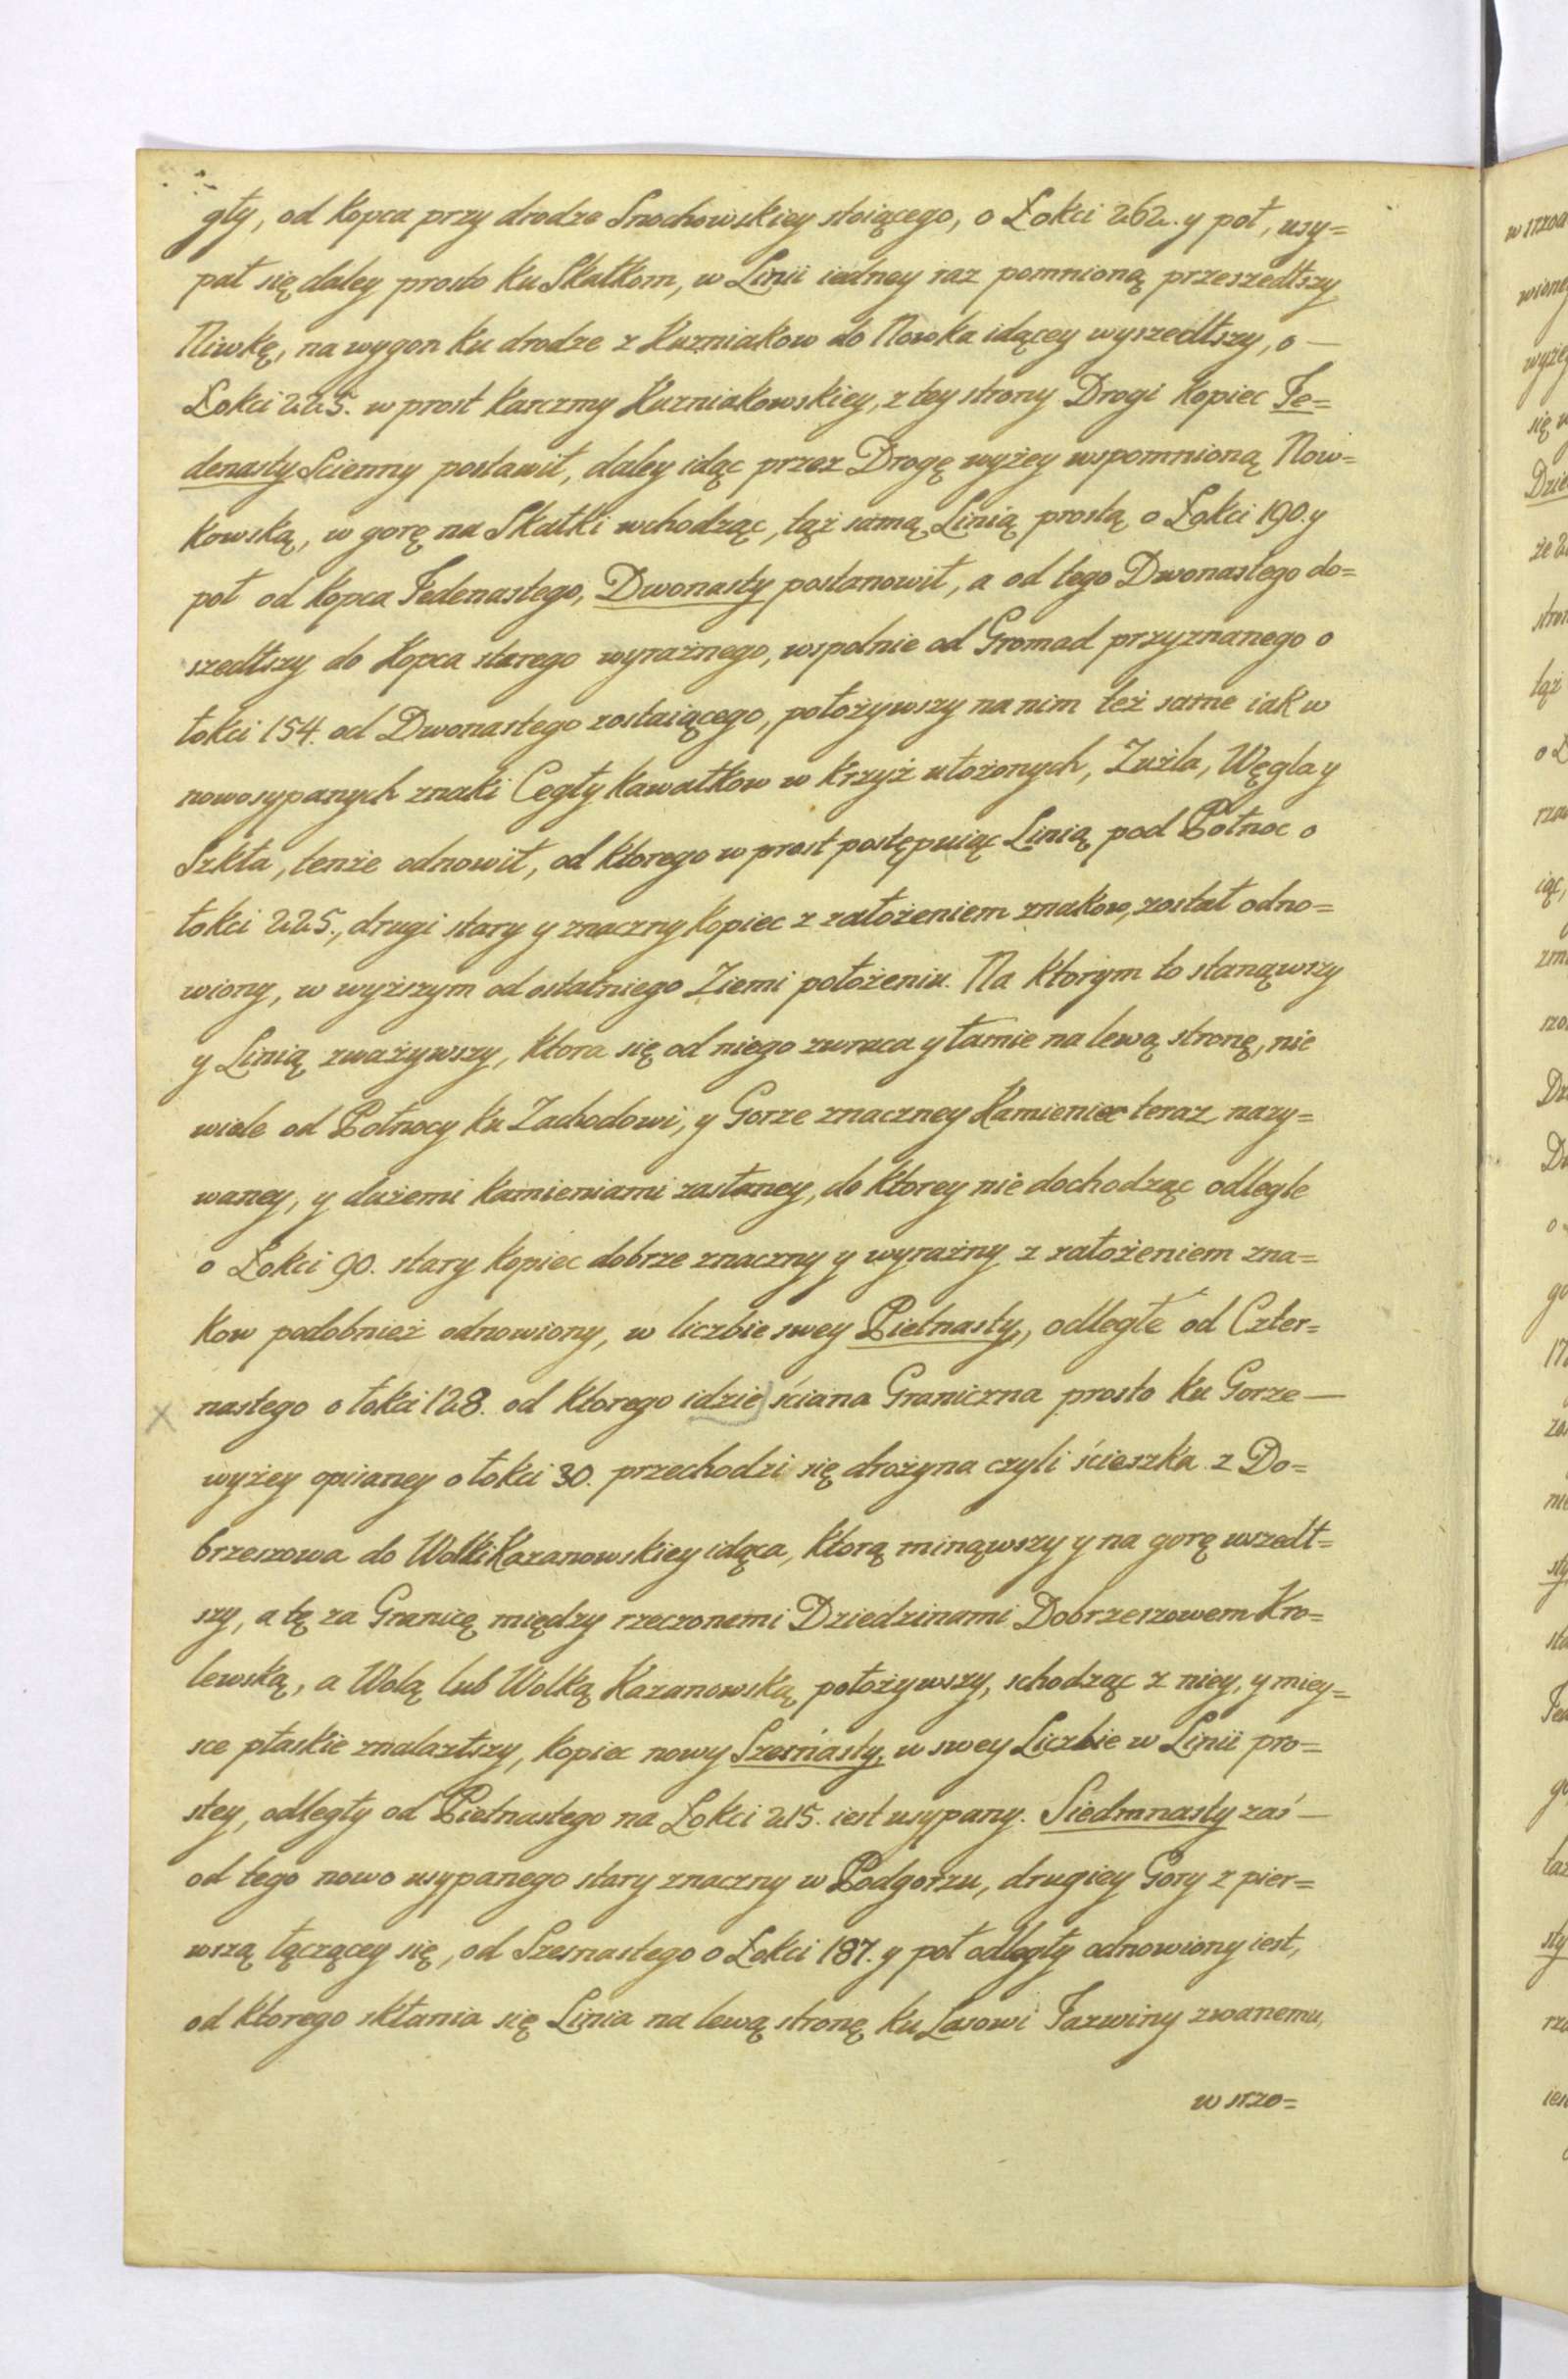 gły, od kopca przy drodze Snochowskiey stoiącego, o Łokci 262. y poł, usy=
pał się daley prosto ku Skałkom, w Linii iedney raz pomnioną przeszedłszy
Niwkę, na wygon ku drodze z Kuzniakow do Nowka idącey wyszedłszy, o —
Łokci 225. w prost Karczmy Kuzniakowskiey, z tey strony Drogi kopiec Je=
denasty Scienny postawił, daley idąc przez Drogę wyżey wspomnioną Now=
kowską, w gorę na Skałki wchodząc, tąż samą Linią prostą o Łokci 190. y
poł od kopca Jedenastego, Dwonasty postanowił, a od tego Dwonastego do=
szedłszy do Kopca starego wyraznego, wspolnie od Gromad przyznanego o
łokci 154. od Dwonastego zostaiącego, położywszy na nim też same iak w
nowosypanych znaki Cegły kawałkow w krzyż ułożonych, Zużla, Węgla y
Szkła, tenże odnowił, od ktorego w prost postępuiąc Linią pod Połnoc o
łokci 225., drugi stary y znaczny kopiec z założeniem znakow, został odno=
wiony, w wyższym od ostatniego Ziemi położeniu. Na ktorym to stanąwszy
y Linią zważywszy, ktora się od niego zwraca y łamie na lewą stronę, nie
wiele od Połnocy ku Zachodowi, y Gorze znaczney Kamieniec teraz nazy=
waney, y dużemi kamieniami zasłaney, do ktorey nie dochodząc odległe
o Łokci 90. stary kopiec dobrze znaczny y wyrażny z założeniem zna=
kow podobnież odnowiony, w liczbie swey Pietnasty, odległe od Czter=
nastego o łokci 128. od ktorego idzie) ściana Graniczna prosto ku Gorze —
wyżey opisaney o łokci 30. przechodzi się drożyna czyli ścieszka z Do=
brzeszowa do Wolki Kazanowskiey idąca, ktorą minąwszy y na gorę wszedł=
szy, a tę za Granicę między rzeczonemi Dziedzinami Dobrzeszowem Kro=
lewską, a Wolą lub Wolką Kazanowską położywszy, schodząc z niey, y miey=
sce płaskie znalazłszy, kopiec nowy Szesnasty, w swey Liczbie w Linii pro=
stey, odległy od Pietnastego na Łokci 215. iest usypany. Siedmnasty zaś —
od tego nowo usypanego stary znaczny w Podgorzu, drugiey Gory z pier=
wszą łączącey się, od Szesnastego o Łokci 187. y poł odległy odnowiony iest,
od ktorego skłania się Linia na lewą stronę ku Lasowi Jazwiny zwanemu,
w srzo=